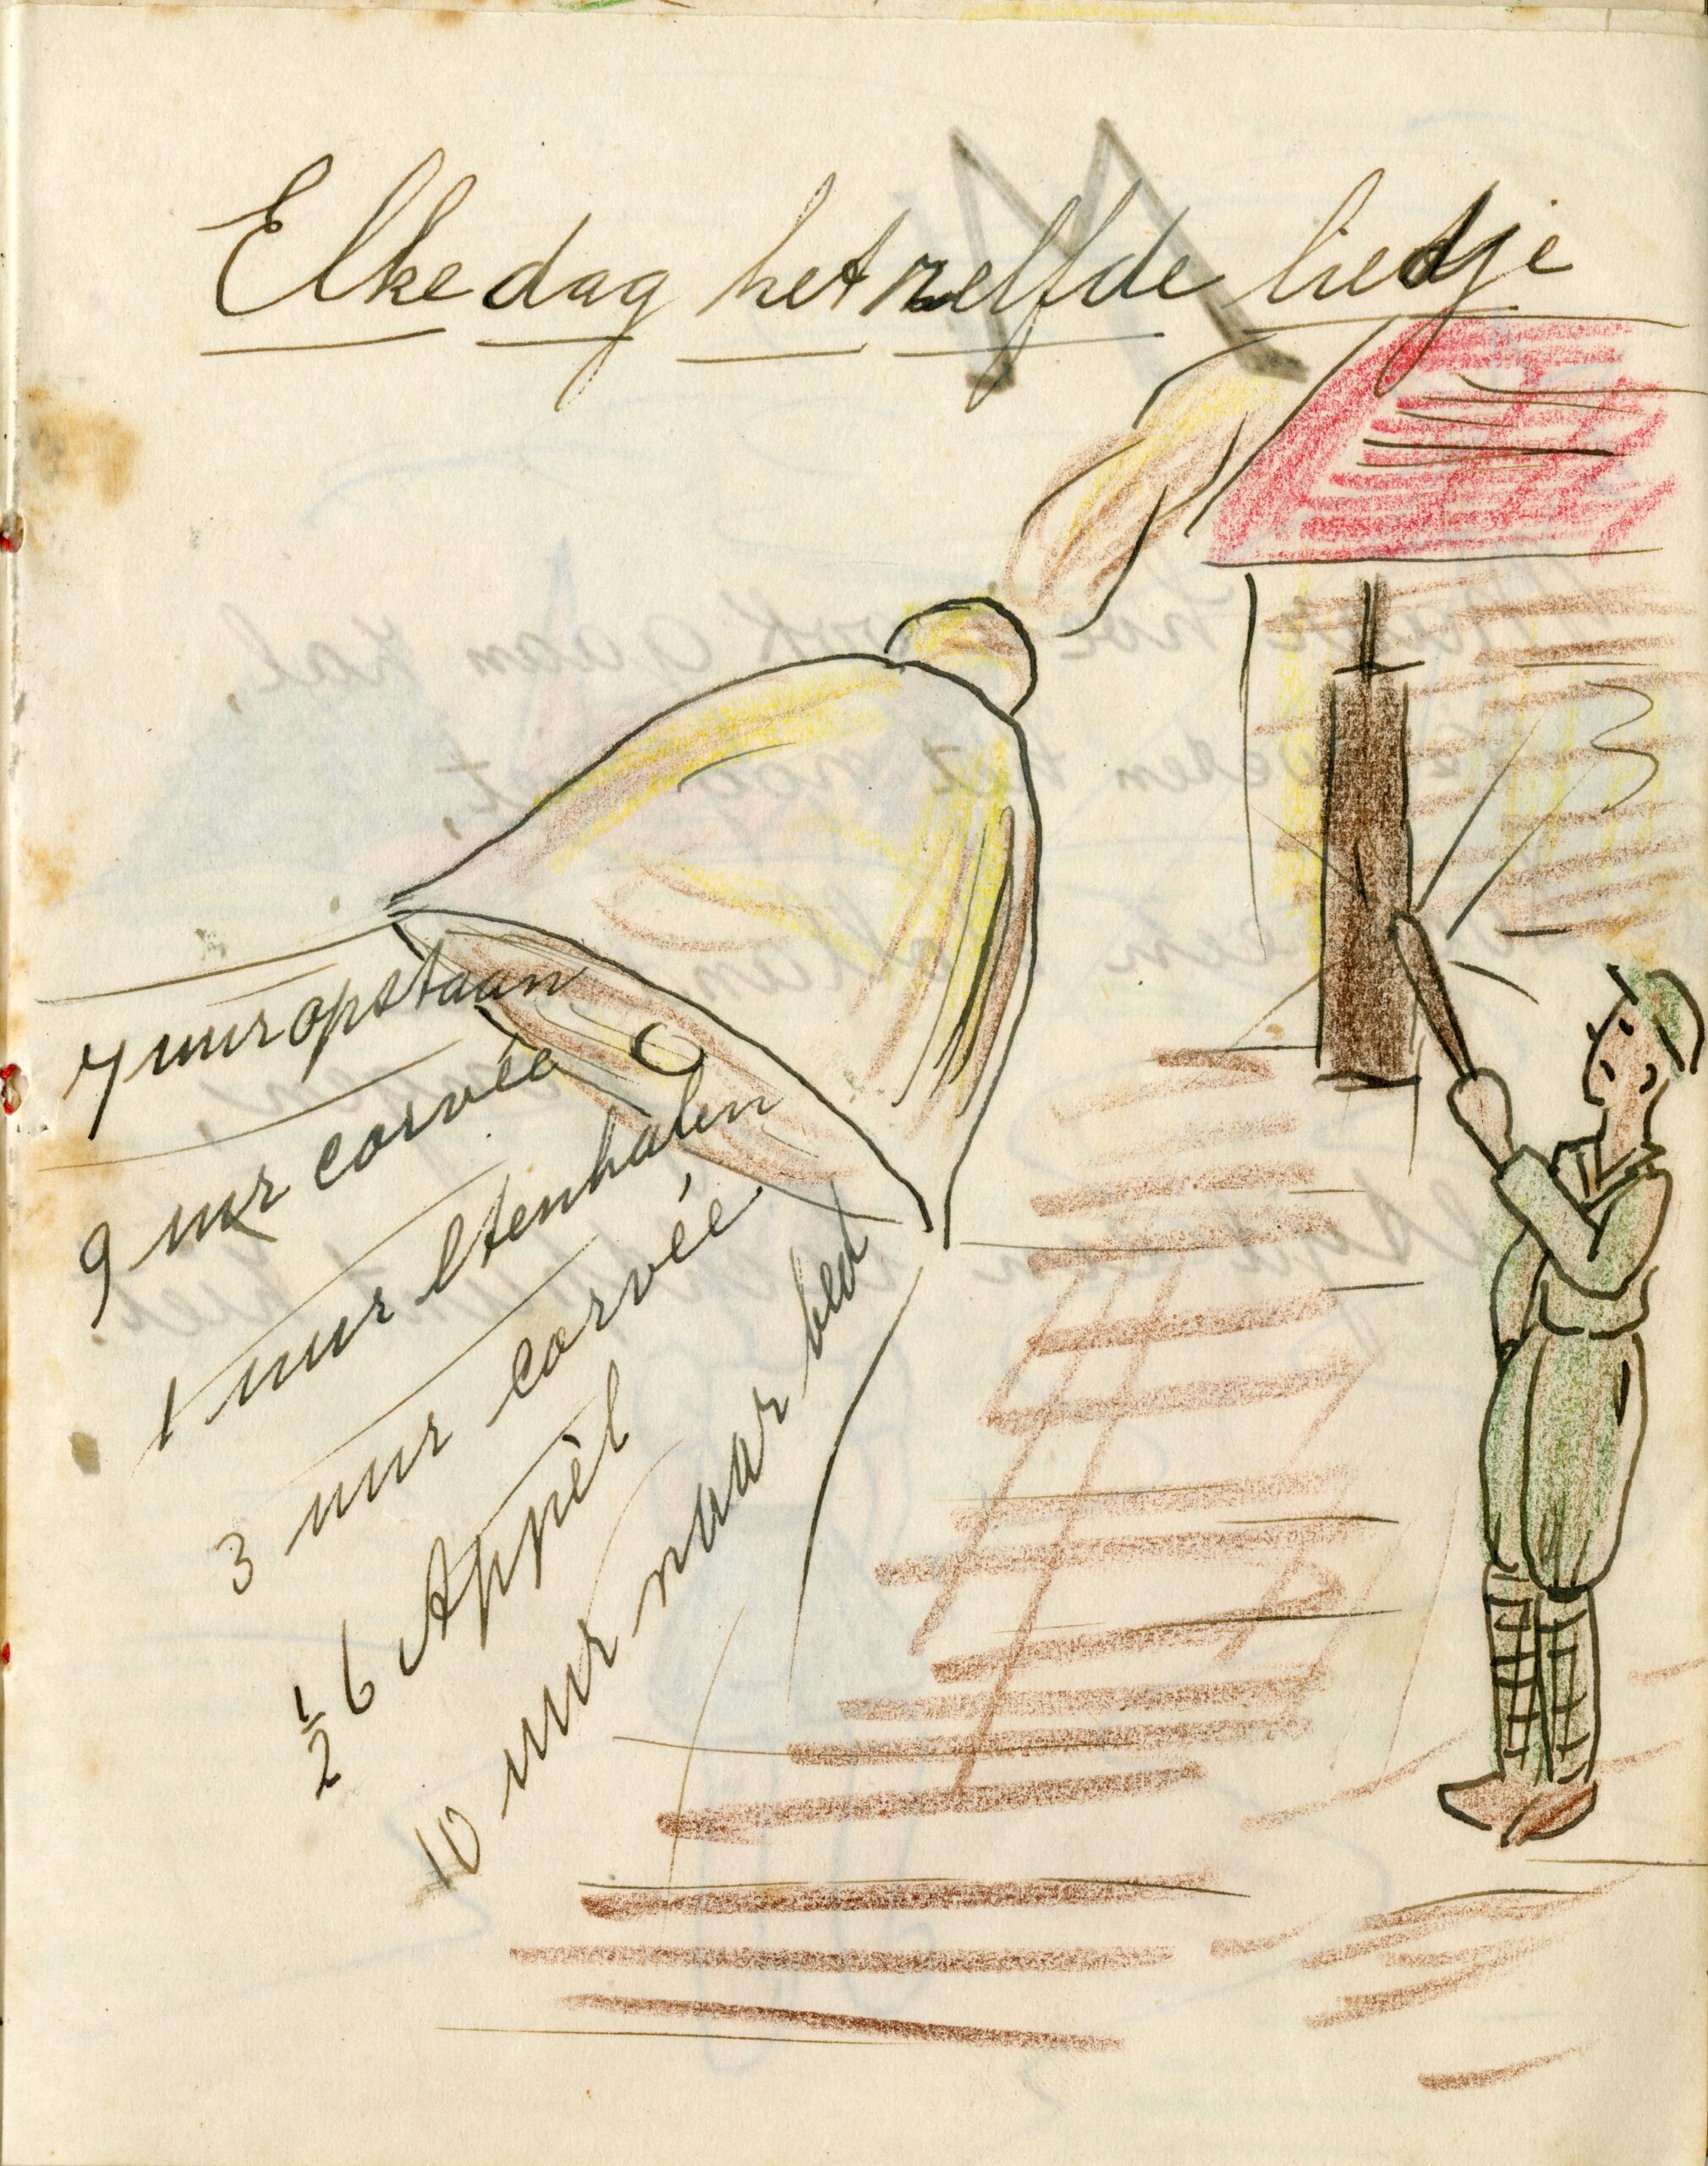 Elke dag het zelfde liedje
7 uur opstaan
9 uur corvée
1 uur etenhalen
3 uur corvée
½ 6 Appèl
10 uur naar bed